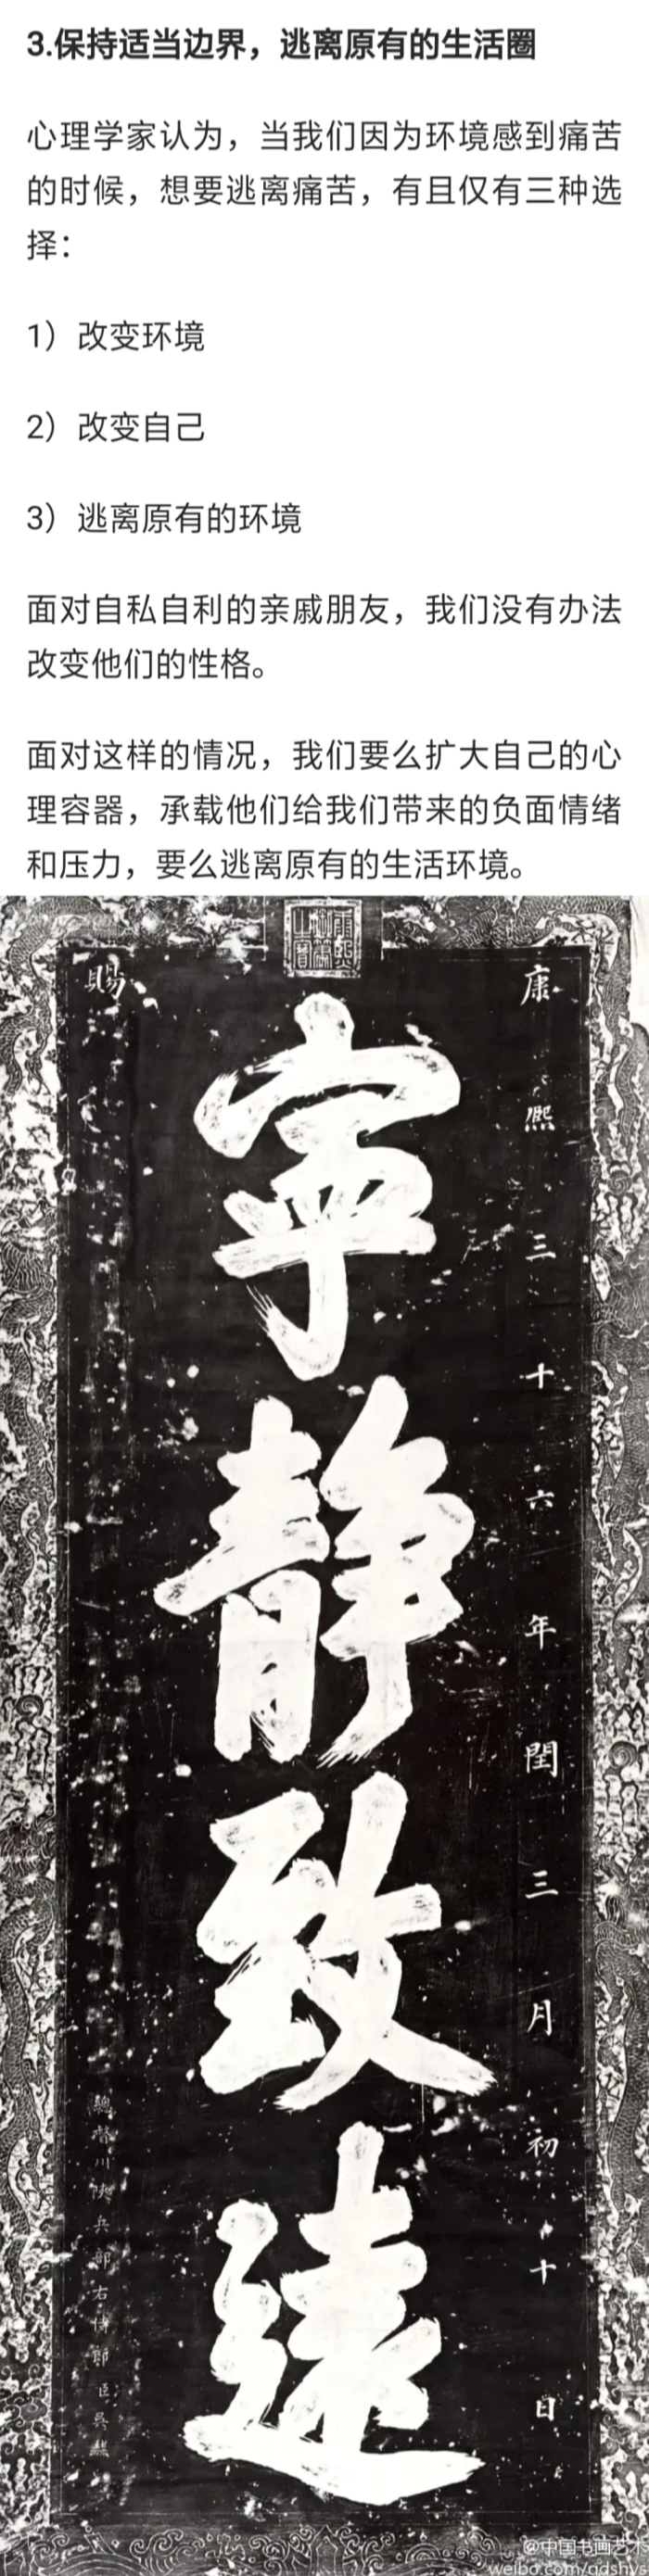 3.保持适当边界，逃离原有的生活圈
心理学家认为，当我们因为环境感到痛苦
的时候，想要逃离痛苦，有且仅有三种选
择：
1）改变环境
2）改变自己
3）逃离原有的环境
面对自私自利的亲戚朋友，我们没有办法
改变他们的性格。
面对这样的情况，我们要么扩大自己的心
理容器，承载他们给我们带来的负面情绪
和压力，要么逃离原有的生活环境。
康熙三十六年閏三月初十日
寧靜致遠
賜
總督川陕兵部右侍郎臣吳
@中国书画艺术
weibo.com/qdshys